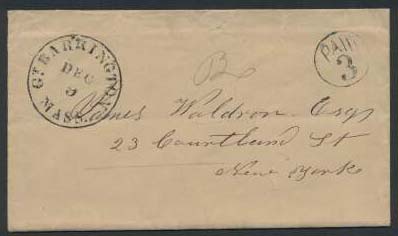 Gt. BARRINGTON
MASS.
DEC
9
PAID
3
B
James Waldron Esq
23 Courtland St
New York